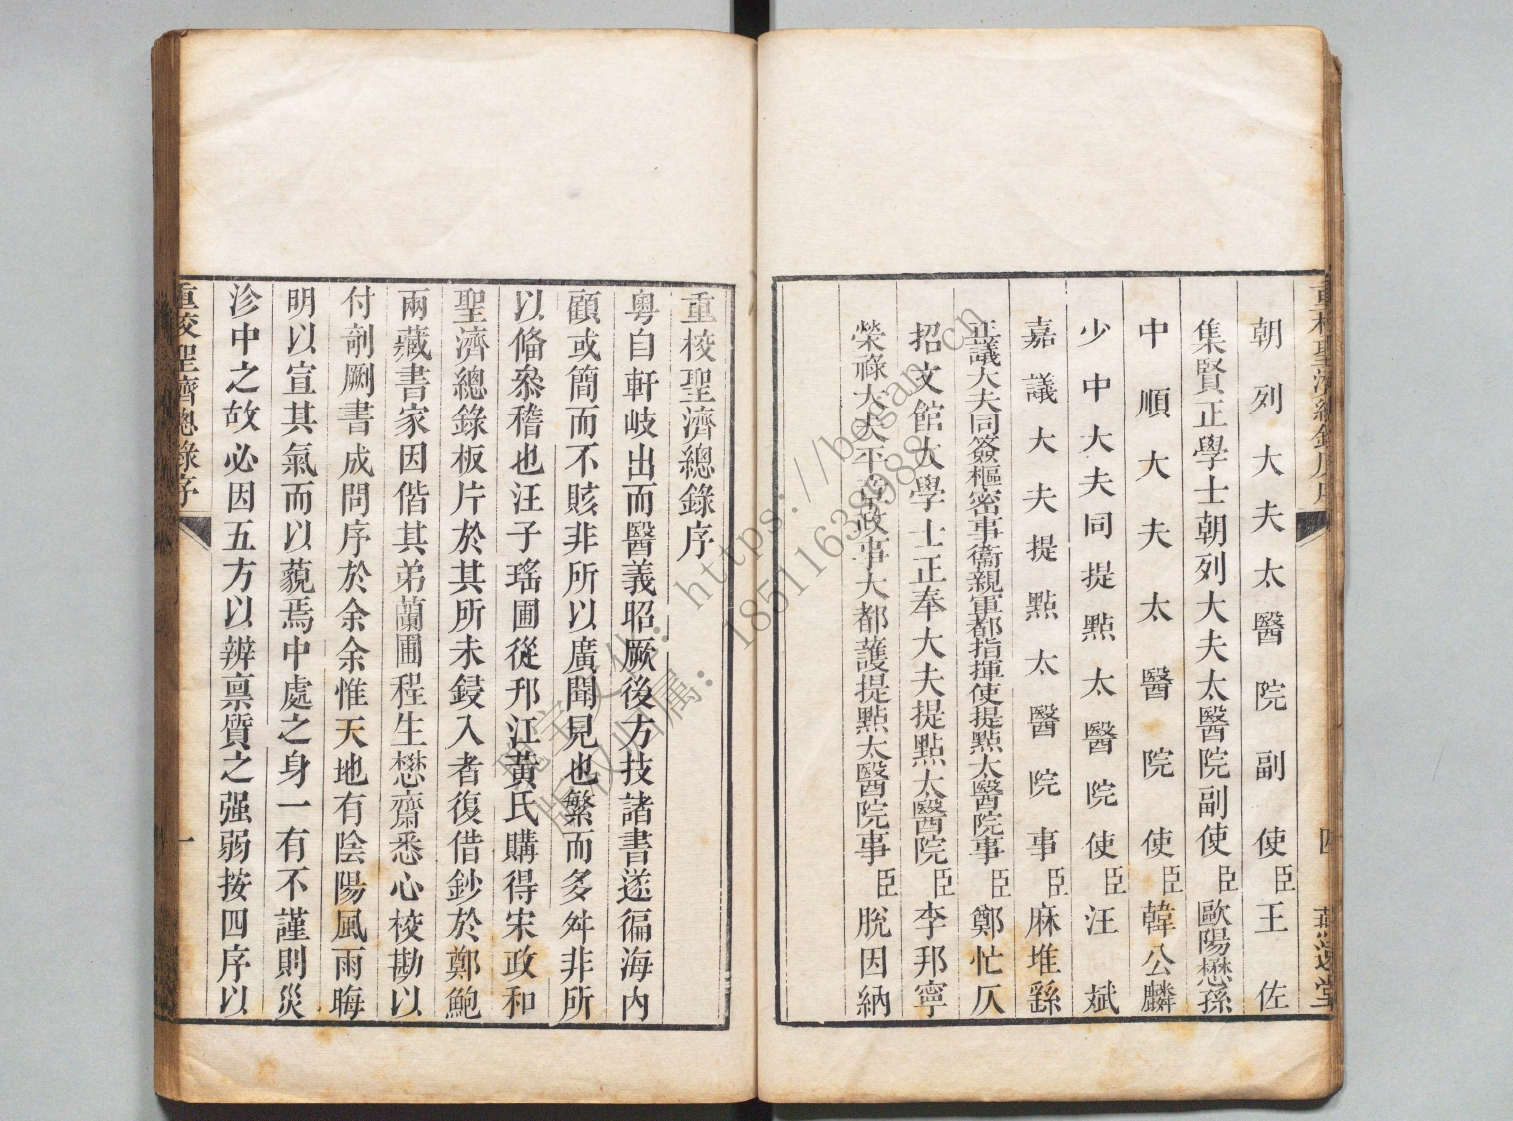 朝列大夫太醫院副使臣王佐
集賢正學士朝列大夫太醫院副使臣歐陽懋孫
中順大夫太醫院使臣韓公麟
少中大夫同提㸃太醫院使臣汪斌
嘉議大夫提㸃太醫院事臣麻堆繇
正議大夫同簽樞密事衞親軍都指揮使提㸃太醫院事臣鄭忙仄
招文館大學士正奉大夫提㸃太醫院臣李邦寧
榮祿大夫平章政事大都護提㸃太醫院事臣脫因納
重校聖濟總錄序
粵自軒岐出而醫義昭厥後方技諸書遂徧海内
顧或簡而不賅非所以廣聞見也繁而多舛非所
以俻叅稽也汪子瑤圃從邗江黃氏購得宋政和
聖濟總錄板片於其所未鋟入者復借鈔於鄭鮑
兩藏書家因偕其弟蘭圃程生懋齋悉心校勘以
付剞劂書成問序於余余惟天地有陰陽風雨晦
明以宣其氣而以藐焉中處之身一有不謹則災
沴中之故必因五方以辨禀質之强弱按四序以
重校聖濟總錄序
一
四
https://bogan.cn
18511639988